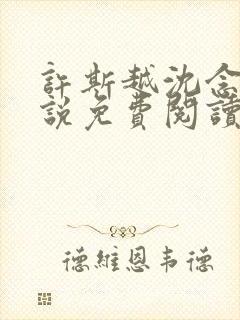 許斯越沈念
說免費閱讀
德維恩韦德